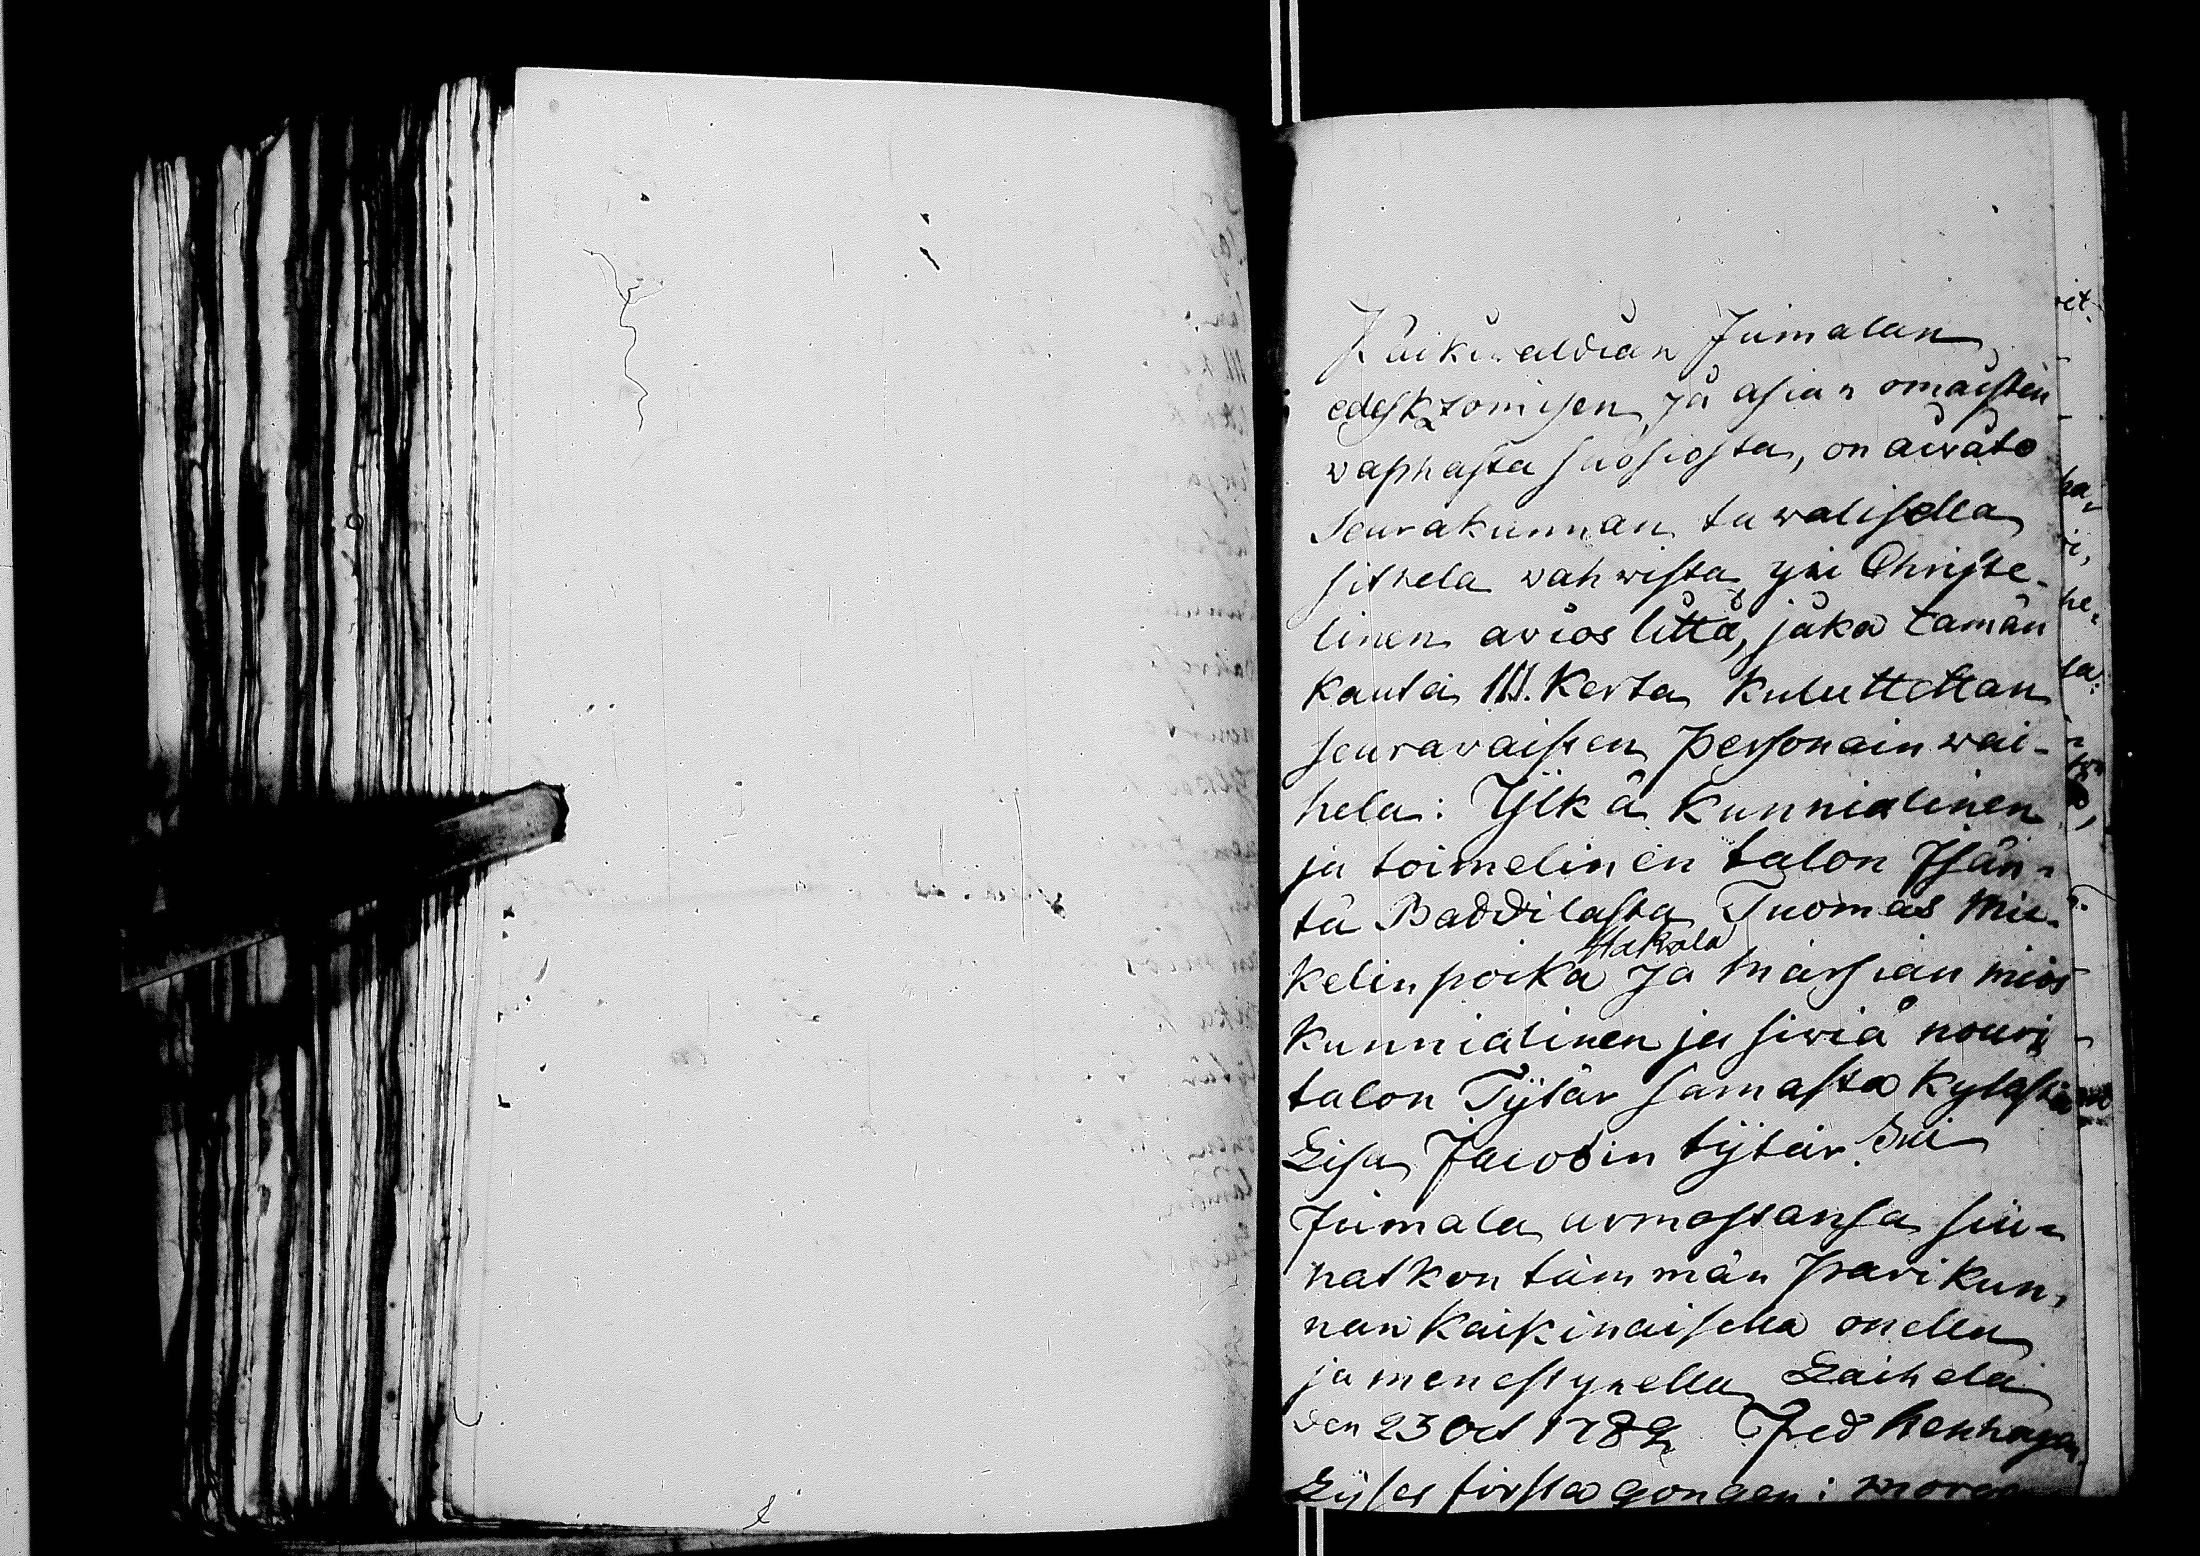 Kaikivaldian Jumalan
edeskzomisen, ja asian omaisten
vaphasta suosiosta, on aivato
Seurakunnan tavalisella
sithela vahvista yxi Christe-
linen avios litto, joka tämän
kauta III. kerta kulutettan
seuravaisten personain vai-
hela: Yjlkä kunnialinen
ja toimelinen talon Isän-
tä Baddilasta Tuomas Mic-
Hakola
kelin poika ja Morsian mios
kunnialinen ja siviä nouri
talon Tytär samasta kylästä
Lisa Jacobin tytär. Sui
Jumala armossansa siu-
natkon tämmän parikun-
nan kaikinaisella onella
ja menestyxella Laihela
den 23 Oct 1782 Fred
Lyses första gongen: morgon